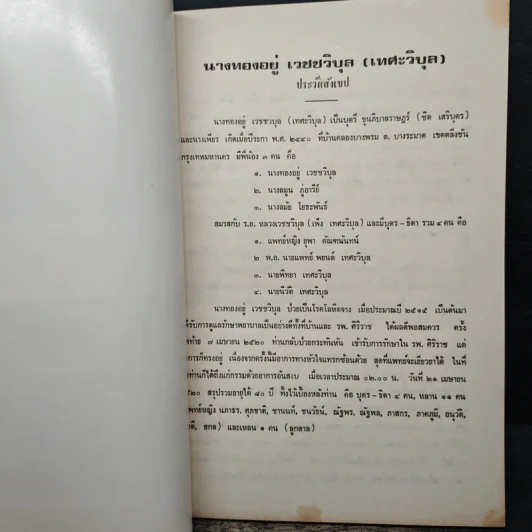 นางทองอยู่ เวชชวิบุล (เทศะวิบุล)
ประวัติสังเขป
นางทองอยู่ เวชชวิบุล (เทศะวิบุล) เป็นบุตรี ขุนภิบาลราษฎร์ (ชิต เสริบุตร)
และนางเพียร เกิดเมื่อปีระกา พ.ศ. ๒๔๔๐ ที่บ้านคลองบางพรม ต. บางระมาด เขตตลิ่งชัน
กรุงเทพมหานคร มีพี่น้อง ๓ คน คือ
๑. นางทองอยู่ เวชชวิบุล
๒. นางลมูน ภู่อารีย์
๓. นางลมัย โยธะพันธ์
สมรสกับ ร.อ. หลวงเวชชวิบุล (เพ็ง เทศะวิบุล) และมีบุตร - ธิดา รวม ๔ คน คือ
๑. แพทย์หญิง ยุพา ตัณฑนันทน์
๒ พ.อ. นายแพทย์ พยนต์ เทศะวิบุล
๓. นายพิทยา เทศะวิบุล
๔. นายนิวัติ เทศะวิบุล
นางทองอยู่ เวชชวิบุล ป่วยเป็นโรคโลหิตจาง เมื่อประมาณปี ๒๕๑๕ เป็นต้นมา
ได้รับการดูแลรักษาพยาบาลเป็นอย่างดีทั้งที่บ้านและ รพ. ศิริราช ได้ผลดีพอสมควร ครั้ง
ท้าย ๗ เมษายน ๒๕๒๐ ท่านกลับป่วยกระทันหัน เข้ารับการรักษาใน รพ. ศิริราช แต่
การก็ทรงอยู่ เนื่องจากครั้งนี้มีอาการทางหัวใจแทรกซ้อนด้วย สุดที่แพทย์จะเยียวยาได้ ในที่
ท่านก็ได้ถึงแก่กรรมด้วยอาการอันสงบ เมื่อเวลาประมาณ ๐๒.๐๐ น. วันที่ ๒๑ เมษายน
๒๐ สรุปรวมอายุได้ ๘๐ ปี ทิ้งไว้เบื้องหลังท่าน คือ บุตร - ธิดา ๔ คน, หลาน ๑๑ คน
แพทย์หญิง นภาธร, ศุภชาติ, ชานนท์, ชนวัธน์, ณัฐพร, ณัฐพล, ภาสกร, ภาคภูมิ, อนุวัติ,
สกล) และเหลน ๑ คน (ลูกตาล)